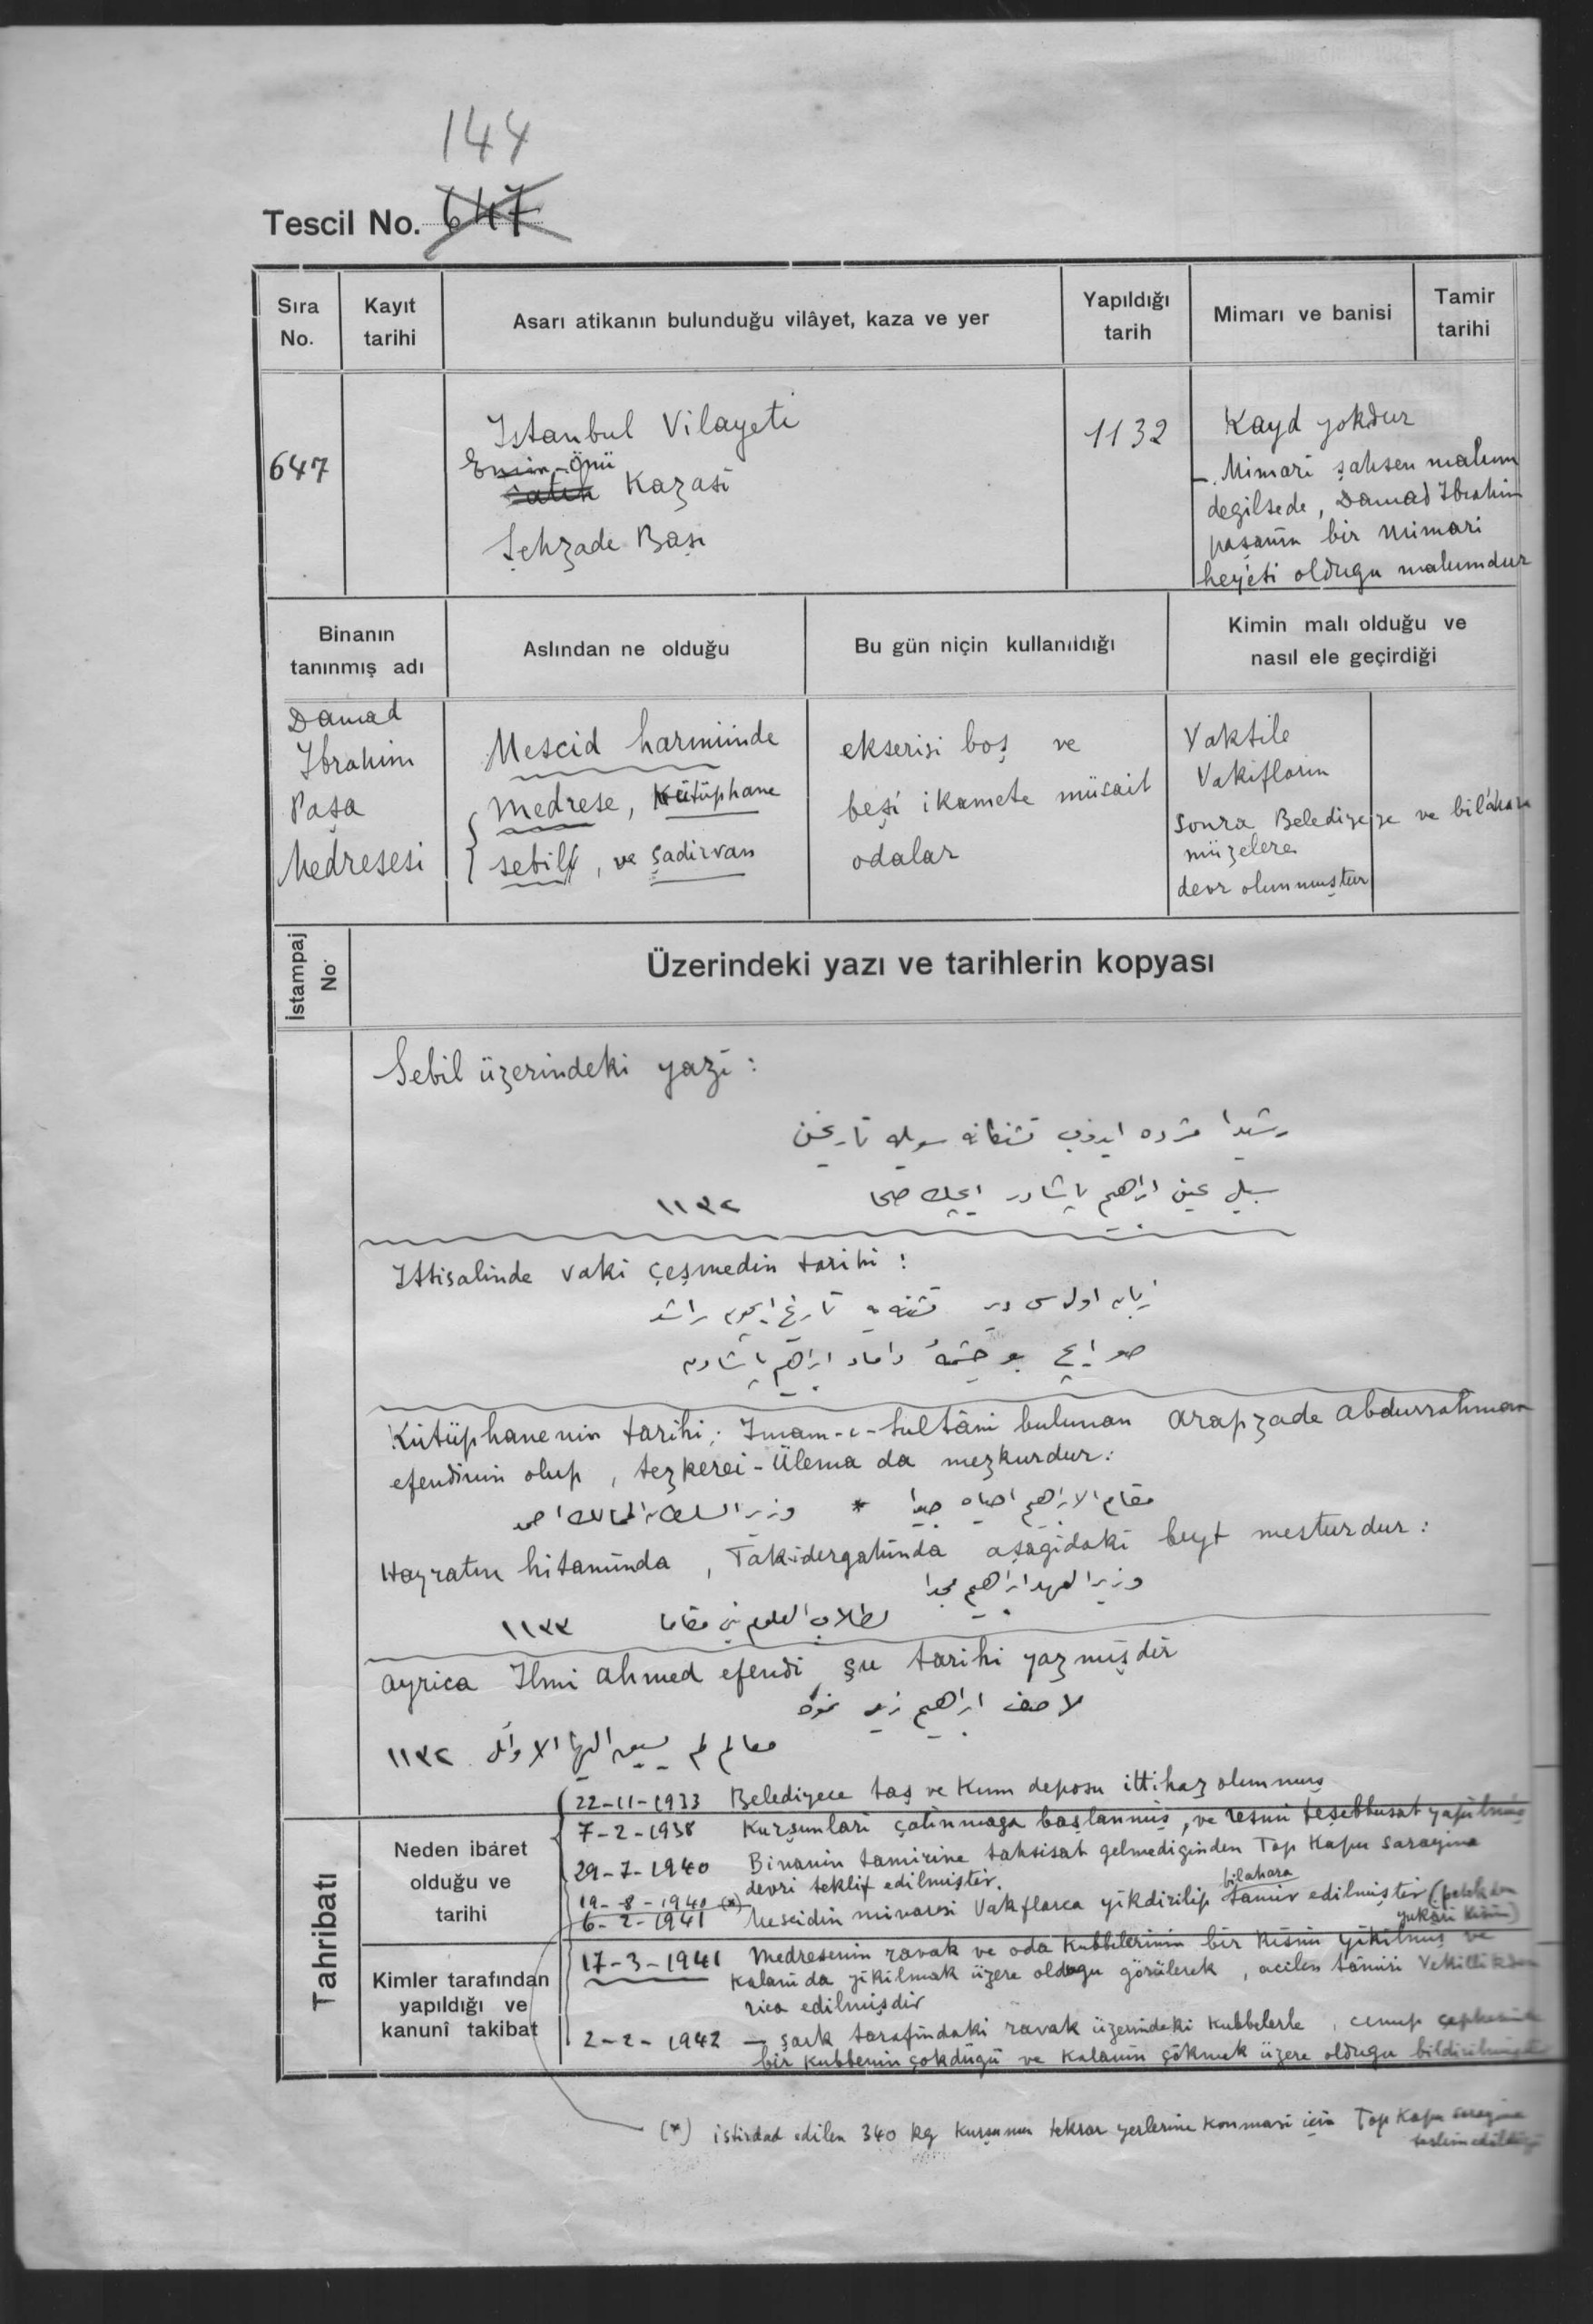 144
Tescil No. 647
Sıra No.
Kayıt tarihi
Asarı atikanın bulunduğu vilâyet, kaza ve yer
Yapıldığı tarih
Mimarı ve banisi
Tamir tarihi
647
Istanbul Vilayeti
Emin-Önü
Fatih Kazasi
Şehzade Başı
1132
Kayd yokdur
- Mimari şahsen malum
degilsede, Damad Ibrahim
paşanın bir mimari
hey'eti oldugu malumdur
Binanın tanınmış adı
Aslından ne olduğu
Bu gün niçin kullanıldığı
Kimin malı olduğu ve nasıl ele geçirdiği
Damad
Ibrahim
Paşa
Medresesi
Mescid harminde
medrese, Kütüphane
sebil, ve şadirvan
ekserisi boş ve
beşi ikamete müsait
odalar
Vaktile
Vakifların
sonra Belediyeye ve bilâhara
müzelere
devr olunmuştur
İstampaj No.
Üzerindeki yazı ve tarihlerin kopyası
Sebil üzerindeki yazi :
رشيدا مژده ايدوب تشنكانه سويله تاريخن
سبيل عين ابراهيم پاشادر ايچك صحا ١١٣٢
Ittisalinde vaki çeşmedin tarihi :
تشنه يه تاريخ ايچون راشد
بو چشمهٔ داماد ابراهيم پاشادن
Kütüphanenin tarihi ; Imam-ı-Sultâni bulunan Arapzade Abdurrahman
efendinin olup , tezkerei-Ülema da mezkurdur :
مقام الابراهيم احياه جيدا *
Hayratın hitamında , Takıdergahında aşagidaki beyt mesturdur :
وزير العهد ابراهيم مجدا
لطلاب العلوم بنى مقاما ١١٣٣
Ayrica Ilmi Ahmed efendi şu tarihi yazmişdir
لاصف ابراهيم
معالم لم يسبق اليها الاوائل ١١٣٢
22-11-1933 Belediyece taş ve Kum deposu ittihaz olunmuş
Tahribatı
Neden ibaret olduğu ve tarihi
7-2-1938 Kurşunlari çalınmaga başlanmış, ve resmi teşebbusat yapılmış
29-7-1940 Binanin tamirine tahsisat gelmediginden Top Kapu Sarayina
devri teklif edilmiştir.
19-8-1940 (*)
6-2-1941 Mescidin minaresi Vakflarca yikdirilip bilahara tamir edilmiştir (petekden
yukari kısım)
Kimler tarafından yapıldığı ve kanunî takibat
17-3-1941 Medresenin ravak ve oda kubbelerinin bir kismi yikilmış ve
kalanı da yikilmak üzere oldugu görülerek , acilen tamiri Vekillikden
rica edilmişdir
2-2-1942 - Şark tarafındaki ravak üzerindeki kubbelerle , cenup cephesinde
bir kubbenin çökdügü ve kalanın çökmek üzere oldugu bildirilmiştir
(*) istirdad edilen 340 kg kurşunun tekrar yerlerine konmasi için Top Kapu sarayına
teslim edildigi